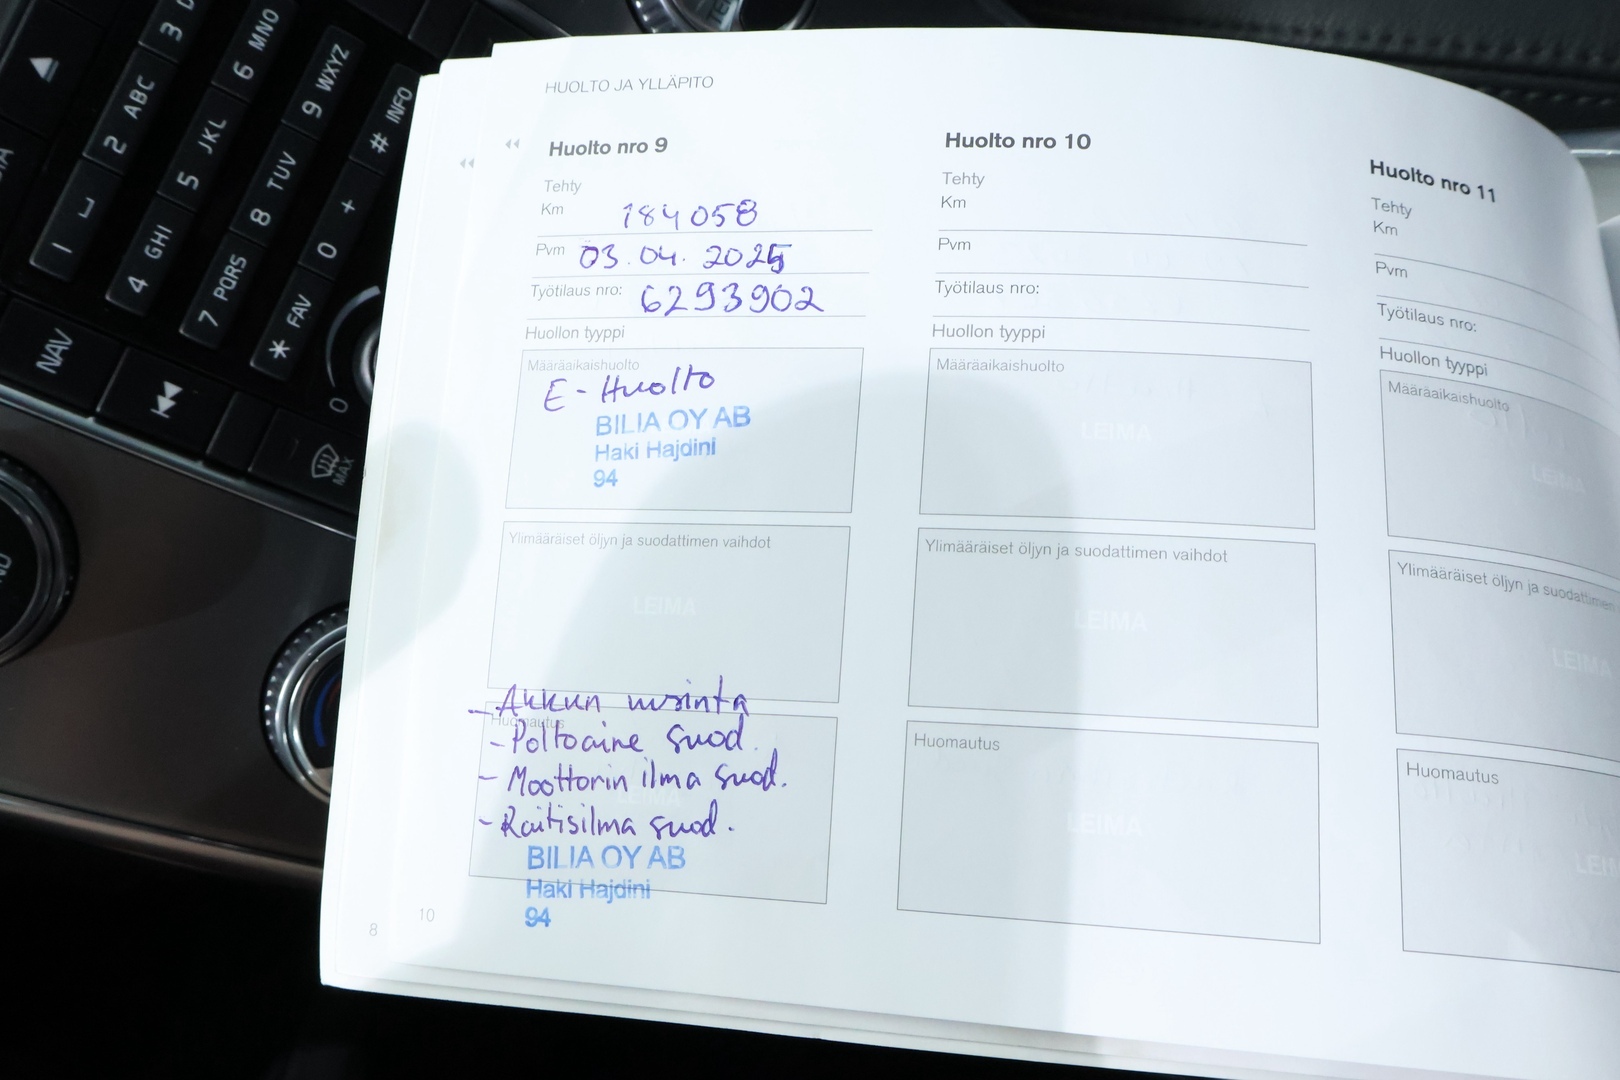 HUOLTO JA YLLÄPITO
Huolto nro 9
Tehty
Km 184058
Pvm 03.04.2025
Työtilaus nro: 6293902
Huollon tyyppi
Määräaikaishuolto
E - Huolto
BILIA OY AB
Haki Hajdini
94
Ylimääräiset öljyn ja suodattimen vaihdot
LEIMA
- Akkun
Huomautus
- Polttoaine suod.
- Moottorin ilma suod.
LEIMA
- Raitisilma suod.
BILIA OY AB
Haki Hajdini
94
8
10
Huolto nro 10
Tehty
Km
Pvm
Työtilaus nro:
Huollon tyyppi
Määräaikaishuolto
LEIMA
Ylimääräiset öljyn ja suodattimen vaihdot
LEIMA
Huomautus
LEIMA
Huolto nro 11
Tehty
Km
Pvm
Työtilaus nro:
Huollon tyyppi
Määräaikaishuolto
LEIMA
Ylimääräiset öljyn ja suodattimen
LEIMA
Huomautus
LEI
3 D
2 ABC
1
6 MNO
5 JKL
4 GHI
9 WXYZ
8 TUV
7 PQRS
# INFO
0 +
* FAV
NAV
0
MAX